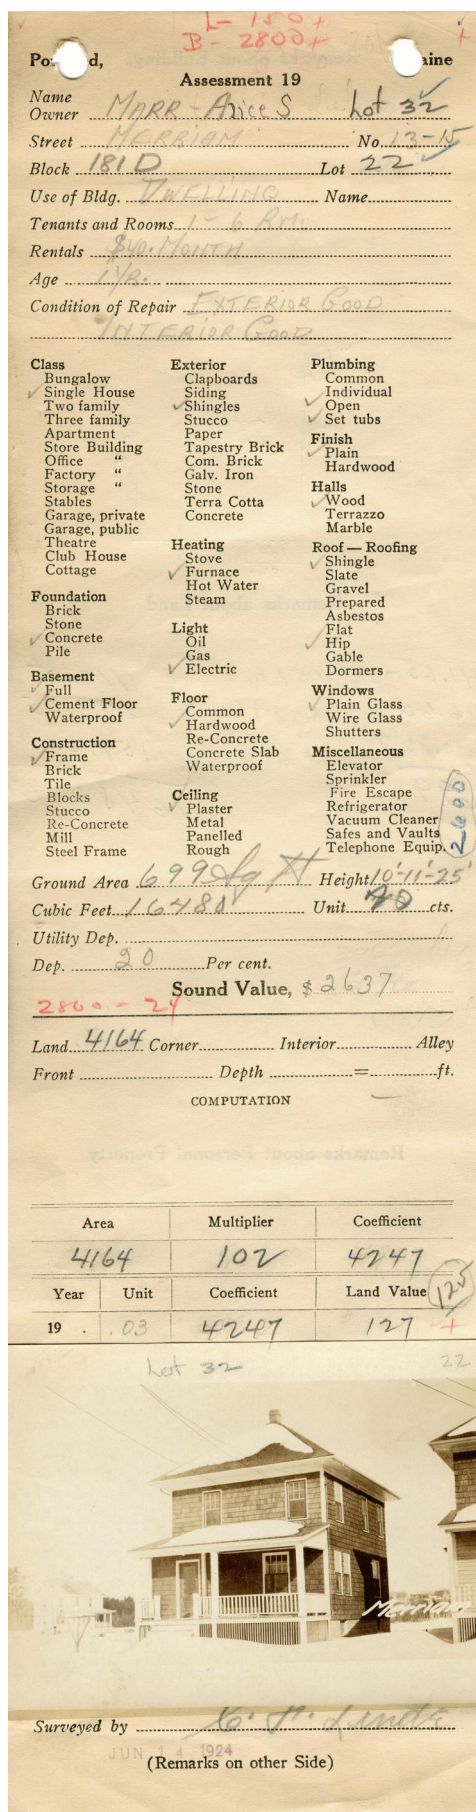 L- 150 +
B- 2800 +
Po d, aine
Assessment 19
Name
Owner MARR - Alice S Lot 32
Street MERRIAM No. 13-15
Block 181D Lot 22
Use of Bldg. DWELLING Name
Tenants and Rooms 1 - 6 RM.
Rentals $40. MONTH
Age 1 YR.
Condition of Repair EXTERIOR GOOD
INTERIOR GOOD
Class
Bungalow
Single House
Two family
Three family
Apartment
Store Building
Office "
Factory "
Storage "
Stables
Garage, private
Garage, public
Theatre
Club House
Cottage
Foundation
Brick
Stone
Concrete
Pile
Basement
Full
Cement Floor
Waterproof
Construction
Frame
Brick
Tile
Blocks
Stucco
Re-Concrete
Mill
Steel Frame
Exterior
Clapboards
Siding
Shingles
Stucco
Paper
Tapestry Brick
Com. Brick
Galv. Iron
Stone
Terra Cotta
Concrete
Heating
Stove
Furnace
Hot Water
Steam
Light
Oil
Gas
Electric
Floor
Common
Hardwood
Re-Concrete
Concrete Slab
Waterproof
Ceiling
Plaster
Metal
Panelled
Rough
Plumbing
Common
Individual
Open
Set tubs
Finish
Plain
Hardwood
Halls
Wood
Terrazzo
Marble
Roof — Roofing
Shingle
Slate
Gravel
Prepared
Asbestos
Flat
Hip
Gable
Dormers
Windows
Plain Glass
Wire Glass
Shutters
Miscellaneous
Elevator
Sprinkler
Fire Escape
Refrigerator
Vacuum Cleaner
Safes and Vaults
Telephone Equip.
2600
Ground Area 699 Sq ft Height 10'-11'-25'
Cubic Feet 16480 Unit 20 cts.
Utility Dep.
Dep. 20 Per cent.
Sound Value, $ 2637
2800 - 24
Land 4164 Corner Interior Alley
Front Depth = ft.
COMPUTATION
Area Multiplier Coefficient
4164 102 4247
Year Unit Coefficient Land Value 125
19 . .03 4247 127 +
Lot 32 22
Merriam
Surveyed by
JUN 14 1924
(Remarks on other Side)